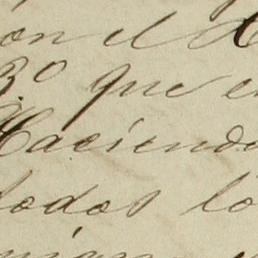 on el
3º que e
Haciend
todos lo